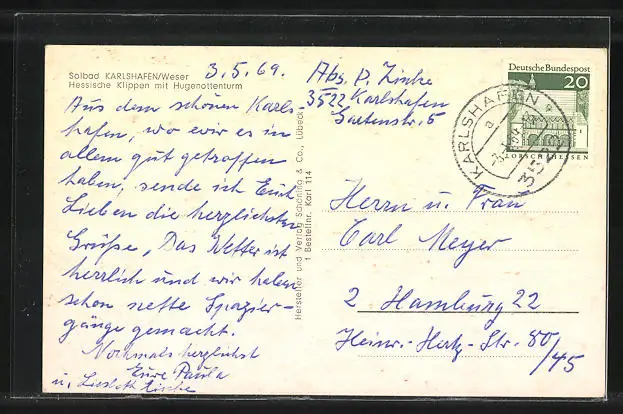 Solbad KARLSHAFEN/Weser
Hessische Klippen mit Hugenottenturm
3.5.69.
Aus dem schönen Karls-
hafen, wo wir es in
allem gut getroffen
haben, sende ich Euch
Lieben die herzlichsten
Grüße. Das Wetter ist
herrlich und wir haben
schon nette Spazier-
gänge gemacht.
Nochmals herzlichst
Eure Paula
u.
Hersteller und Verlag Schöning & Co., Lübeck
1 Bestellnr. Karl 114
Abs. P. Zinke
3522 Karlshafen
Gartenstr. 5
Deutsche Bundespost
20
LORSCH/HESSEN
KARLSHAFEN
a
3522
Herrn u. Frau
Carl Meyer
2 Hamburg 22
Heinr.-Hertz-Str. 80/45